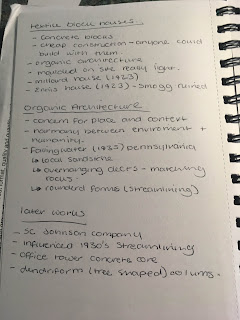 textile block houses.
- concrete blocks
- cheap construction - anyone could
build with them.
- organic architecture
- moulded on site really light.
- millard house (1923)
- Ennis house (1923) - smogg ruined
Organic Architecture
- concern for place and context
- harmony between enviroment +
humanity.
- Fallingwater (1935) pennsylvania
↳ local sandstone
↳ overhanging decks - matching
rocks.
↳ rounded forms (streamlining)
later works
- SC Johnson company
- influenced 1930's streamlining
- office tower concrete core
- dendriform (tree shaped) columns.